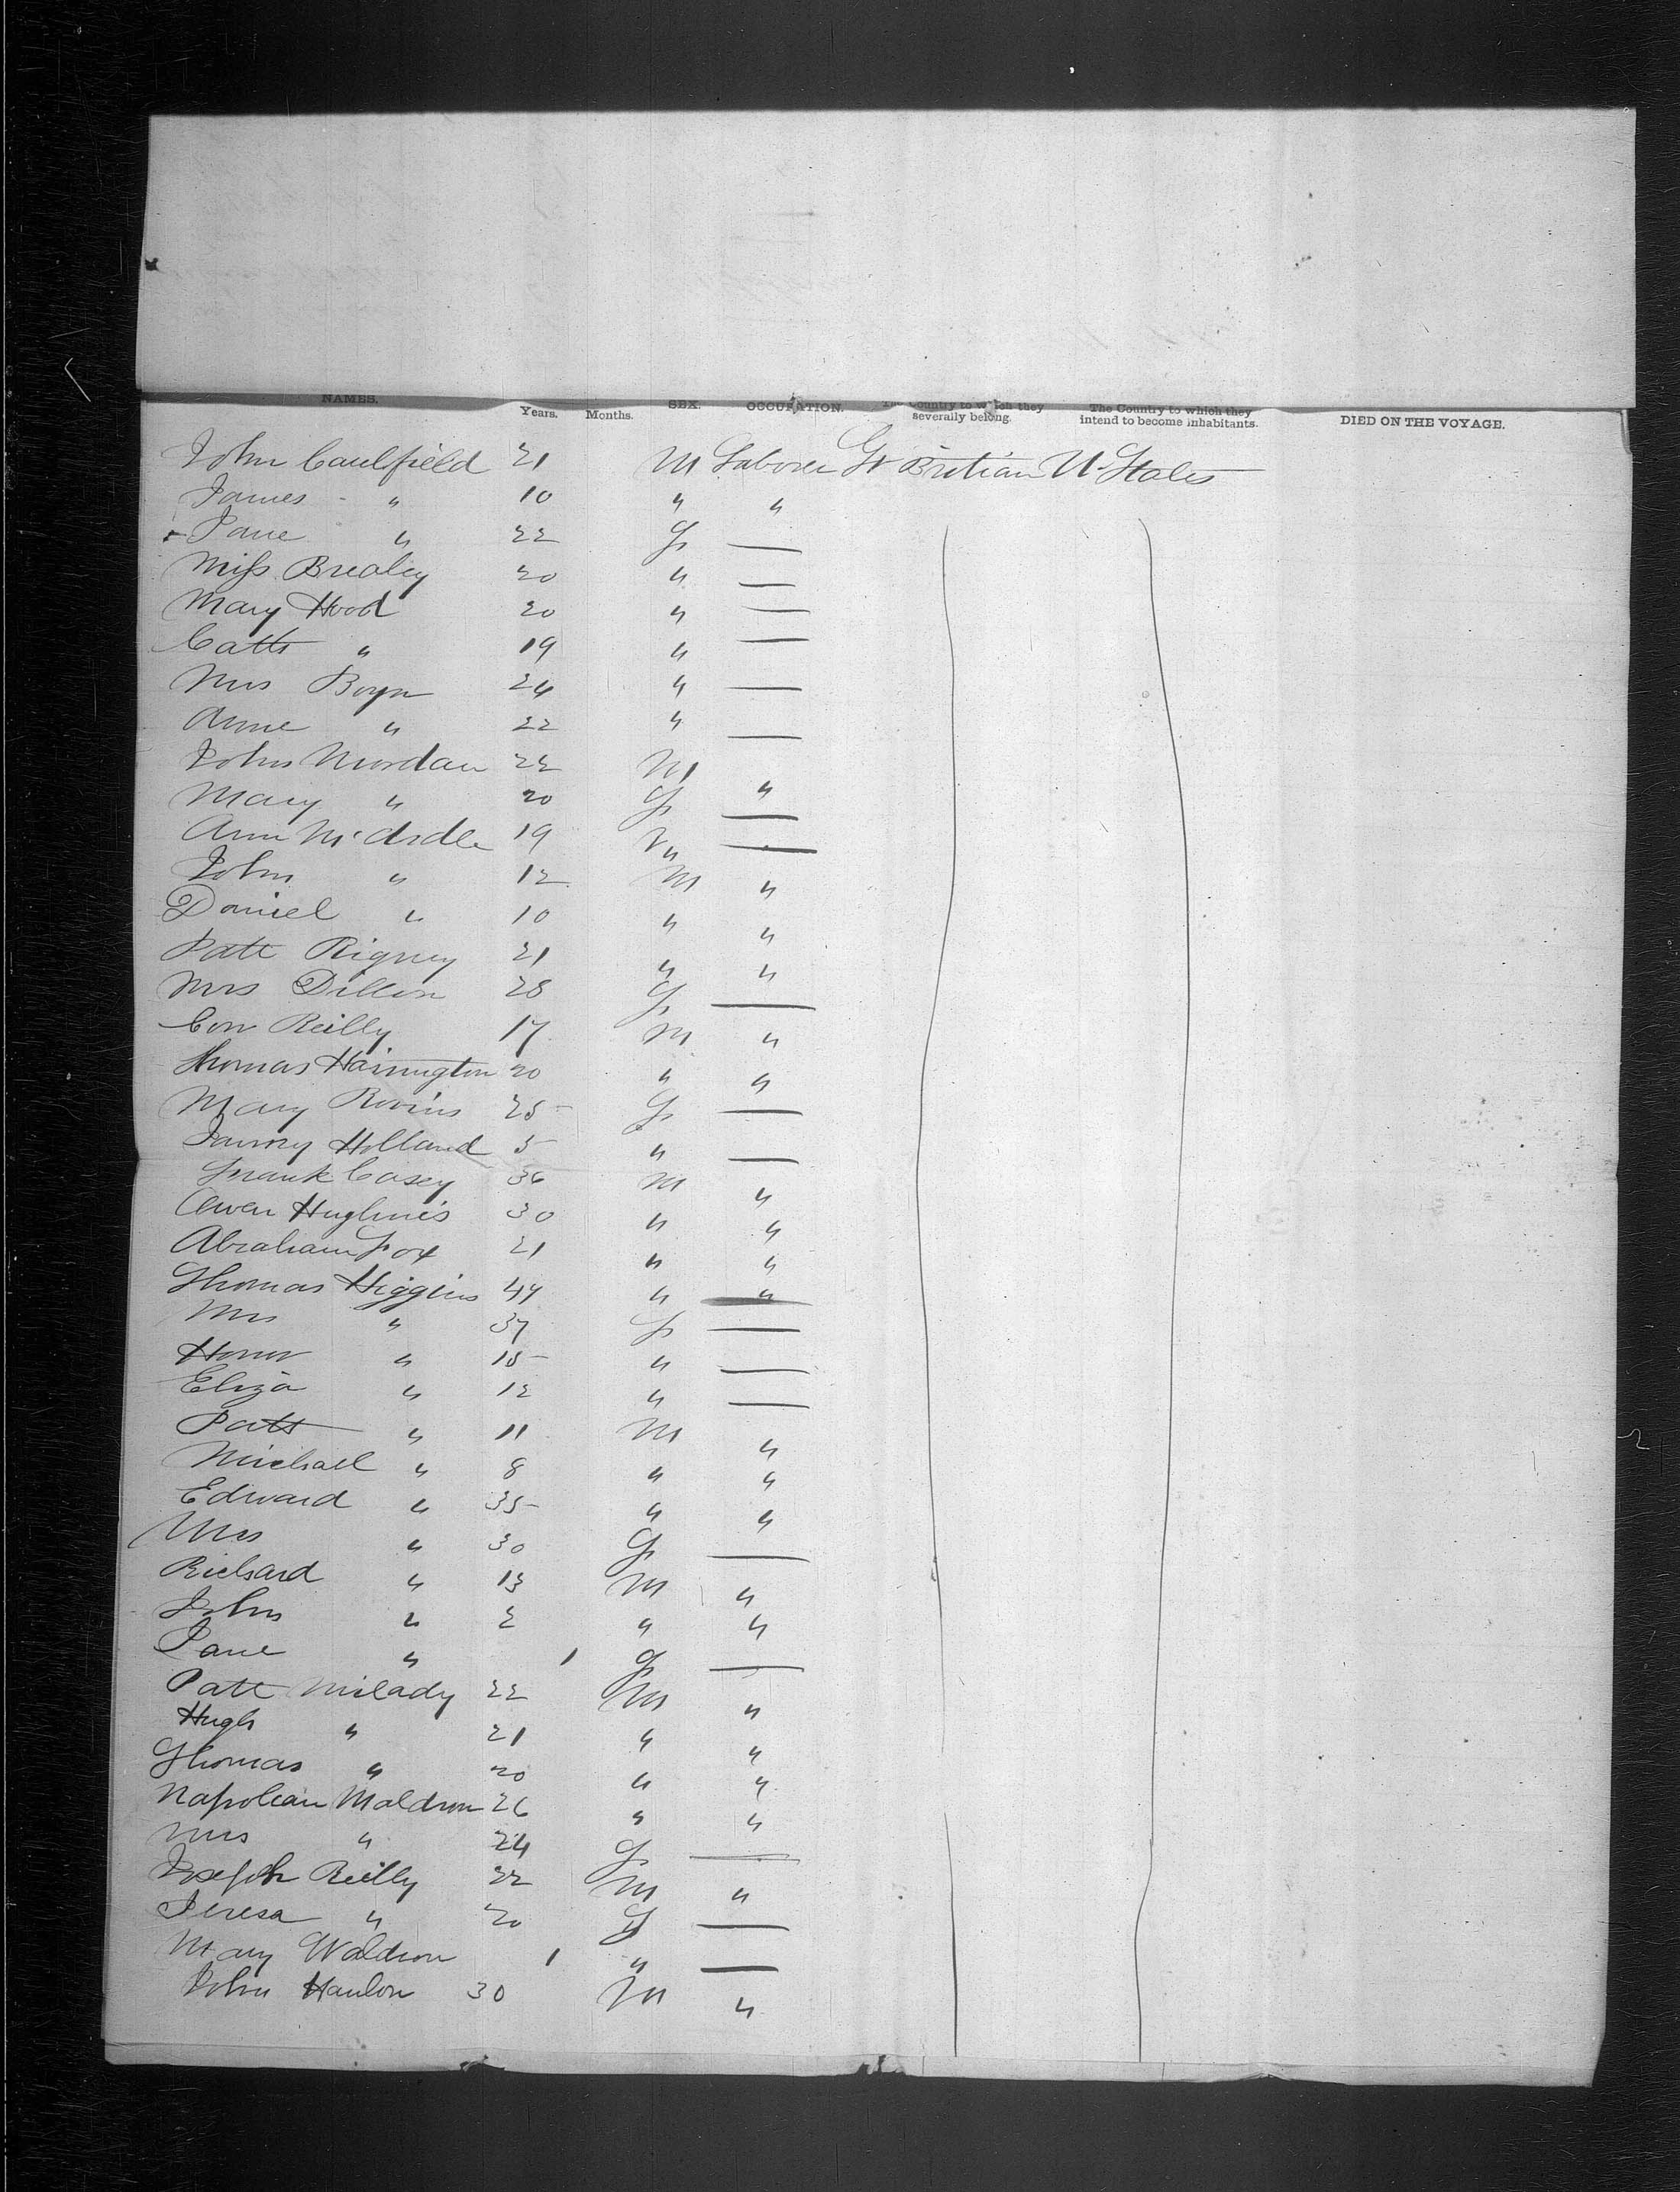 NAMES. Years. Months. SEX. OCCUPATION. The Country to which they severally belong. The Country to which they intend to become inhabitants. DIED ON THE VOYAGE.
John Caulfield 21 M Laborer Gt Britian U States
James " 10 " "
Jane " 22 F —
Miss Brealey 20 " —
Mary Hood 20 " —
Cath " 19 " —
Mrs Boyn 24 " —
Anne " 22 " —
John Mordan 22 M "
Mary " 20 F —
Ann McArdle 19 " —
John " 12 M "
Daniel " 10 " "
Patt Rigney 21 " "
Mrs Dillon 28 F —
Con Reilly 17 M "
Thomas Harrington 20 " "
Mary Rovins 25 F —
Fanny Holland 5 " —
Frank Casey 36 M "
Owen Hughmes 30 " "
Abraham Fox 21 " "
Thomas Higgins 47 " "
Mrs " 37 F —
Honor " 15 " —
Eliza " 12 " —
Patt " 11 M "
Michael " 8 " "
Edward " 35 " "
Mrs " 30 F —
Richard " 13 M "
John " 2 " "
Jane " 1 F —
Patt Milady 22 M "
Hugh " 21 " "
Thomas " 20 " "
Napolean Maldron 26 " "
Mrs " 24 F —
Joseph Reilly 22 M "
Teresa " 20 F —
Mary Waldron 1 " —
John Hanlon 30 M "